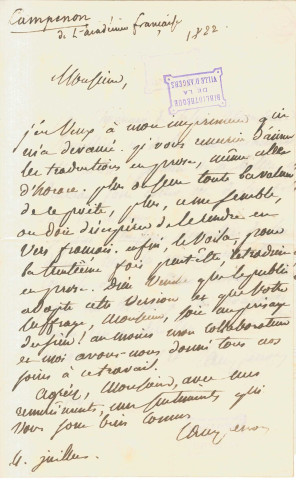 Campenon
de l'académie française
1822.
BIBLIOTHÈQUE
DE LA
VILLE D'ANGERS
Monsieur,
j'en veux à mon imprimeur qui
m'a devancé. je vous envoie d'avance
les traductions en prose, même celle
d'horace. plus on sent toute la valeur
de ce poète, plus, ce me semble,
on doit désespérer de le rendre en
vers français. enfin, le voilà, pour
la trentième fois peut être, traduit
en prose. Dieu veuille que le public
adopte cette version et que votre
suffrage, Monsieur, soit au présage
du sien! au moins mon collaborateur
et moi avons-nous donné tous nos
soins à ce travail.
agréez, Monsieur, avec mes
remerciements, mes sentiments qui
vous sont bien connus
Campenon
4. juillet.